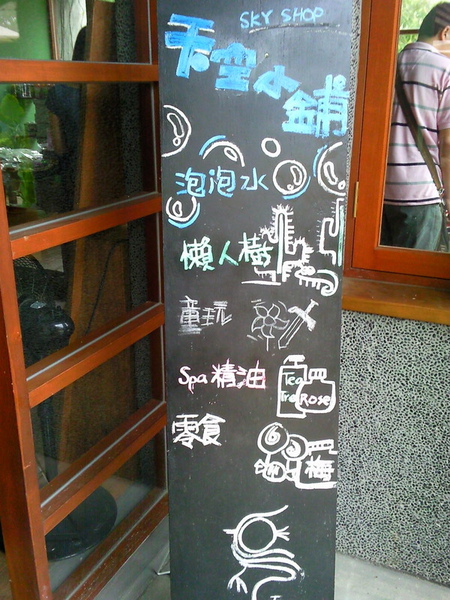 SKY SHOP
天空小舖
泡泡水
懶人樹
童玩
Spa 精油
Tea
Tree
Rose
零食
梅